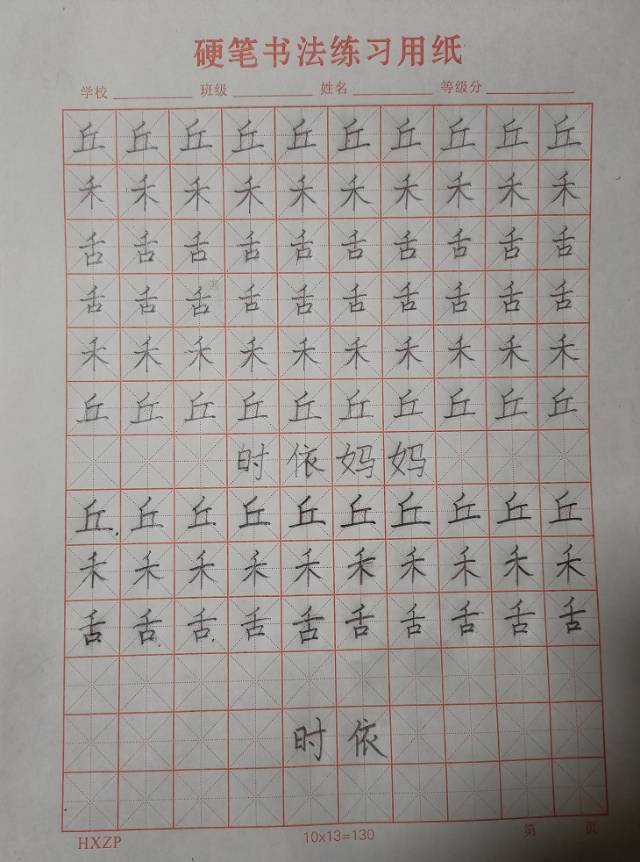 硬笔书法练习用纸
学校 班级 姓名 等级分
丘丘丘丘丘丘丘丘丘丘
禾禾禾禾禾禾禾禾禾禾
舌舌舌舌舌舌舌舌舌舌
舌舌舌舌舌舌舌舌舌舌
禾禾禾禾禾禾禾禾禾禾
丘丘丘丘丘丘丘丘丘丘
时依妈妈
丘丘丘丘丘丘丘丘丘丘
禾禾禾禾禾禾禾禾禾禾
舌舌舌舌舌舌舌舌舌舌
时依
HXZP 10×13=130 第 页